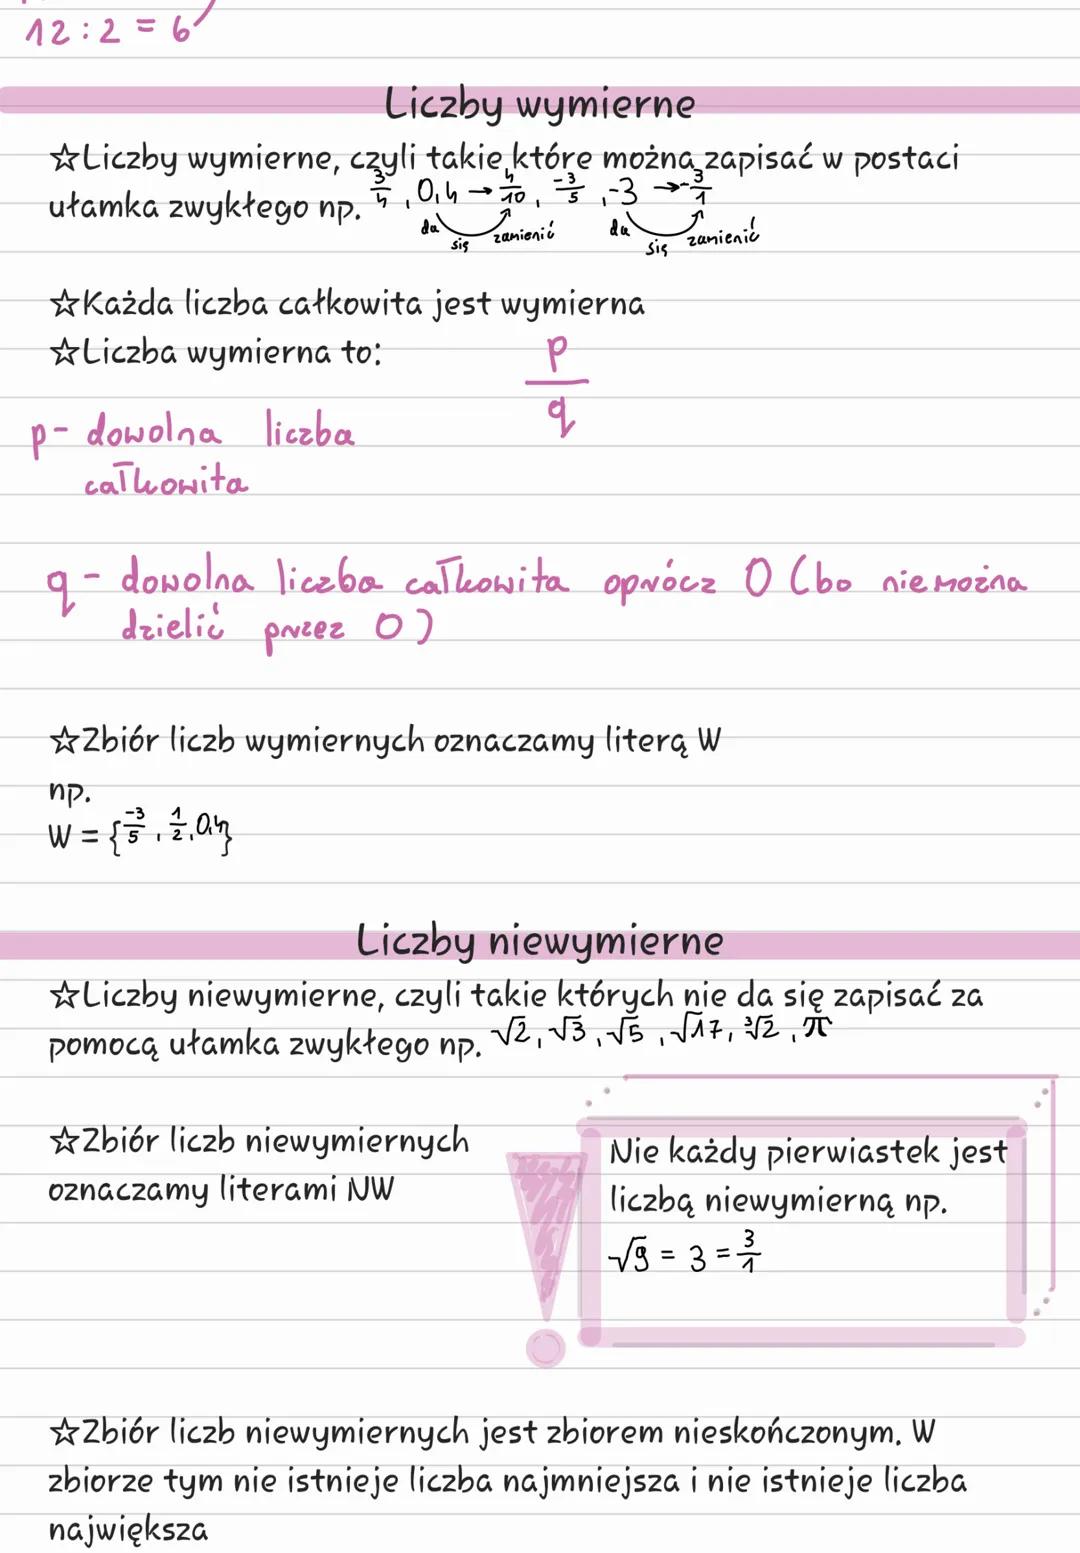 12 : 2 = 6
Liczby wymierne
☆Liczby wymierne, czyli takie które można zapisać w postaci
ułamka zwykłego np. 3/4, 0,4 → 4/10, -3/5, -3 → -3/1
da się zamienić da się zamienić
☆Każda liczba całkowita jest wymierna
☆Liczba wymierna to: p/q
p - dowolna liczba
całkowita
q - dowolna liczba całkowita oprócz 0 (bo nie można
dzielić przez 0)
☆Zbiór liczb wymiernych oznaczamy literą W
np.
W = {-3/5, 1/2, 0,4}
Liczby niewymierne
☆Liczby niewymierne, czyli takie których nie da się zapisać za
pomocą ułamka zwykłego np. √2, √3, √5, √17, ∛2, π
☆Zbiór liczb niewymiernych
oznaczamy literami NW
Nie każdy pierwiastek jest
liczbą niewymierną np.
√9 = 3 = 3/1
☆Zbiór liczb niewymiernych jest zbiorem nieskończonym. W
zbiorze tym nie istnieje liczba najmniejsza i nie istnieje liczba
największa